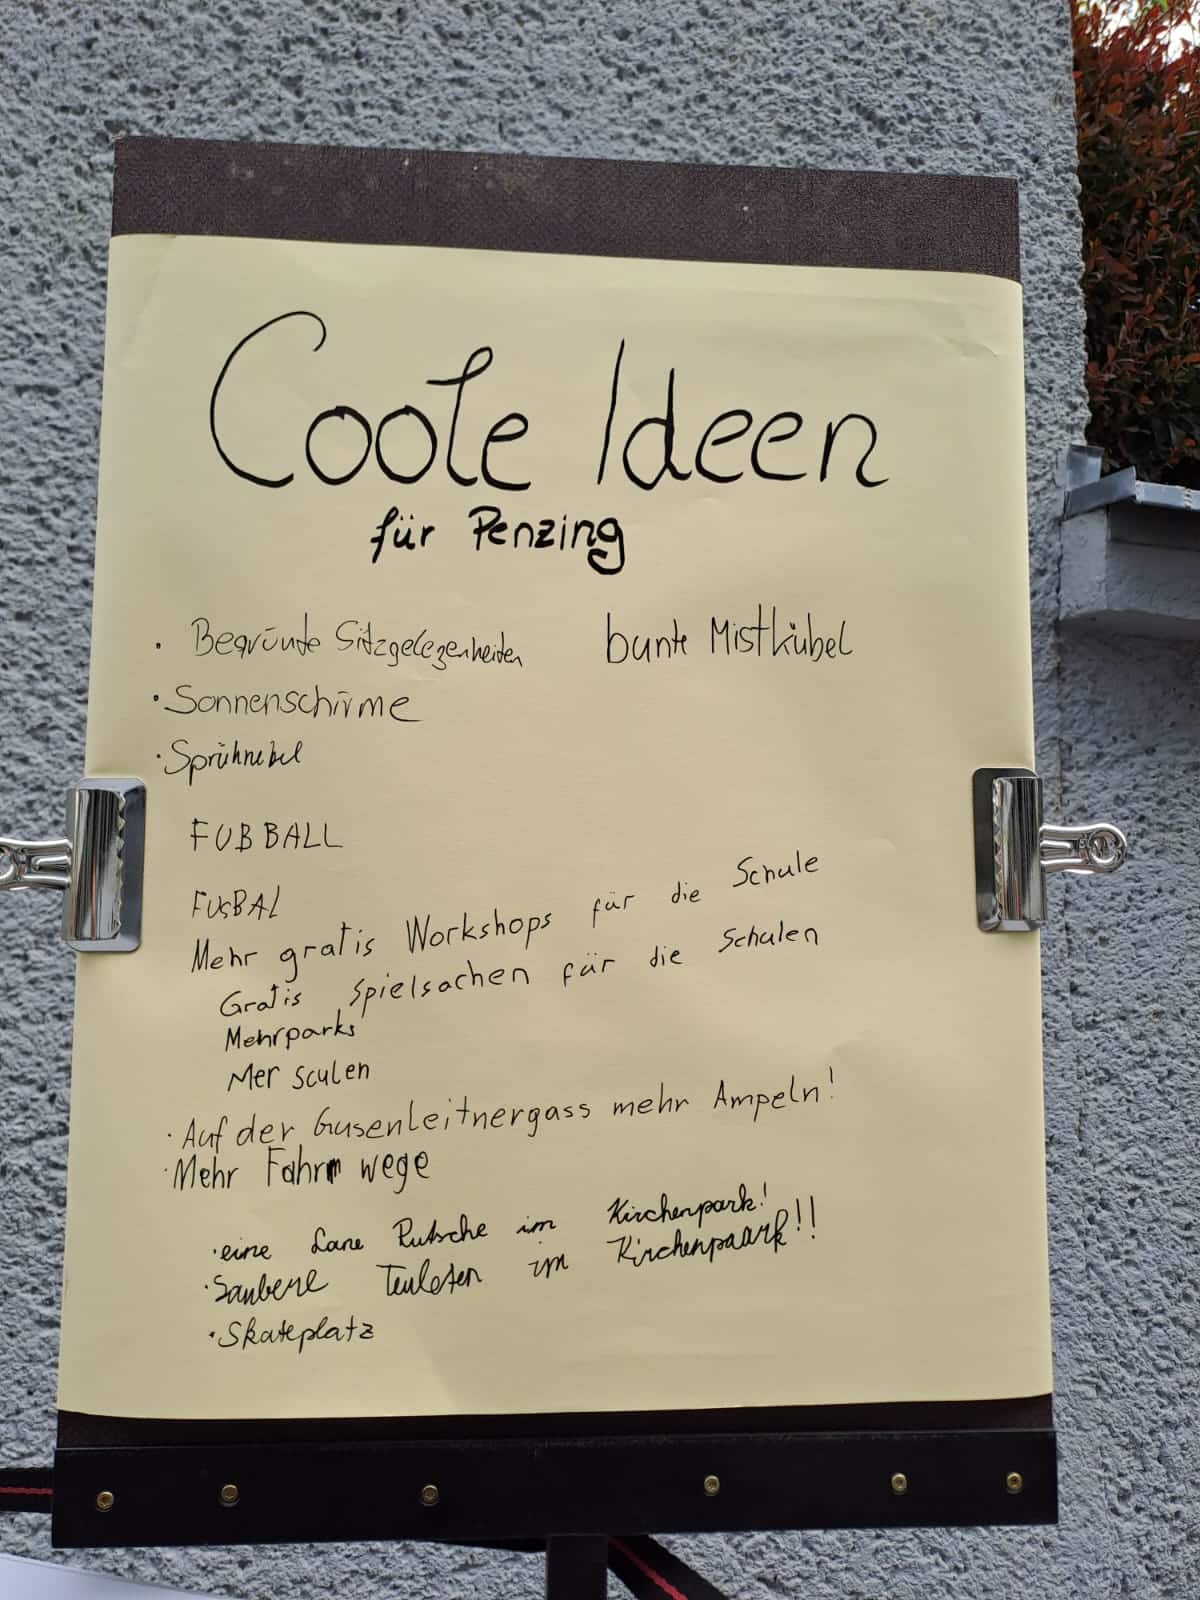 Coole Ideen
für Penzing
• Begrünte Sitzgelegenheiten bunte Mistkübel
• Sonnenschirme
• Sprühnebel
FUBBALL
FUSBAL
Mehr gratis Workshops für die Schule
Gratis Spielsachen für die Schulen
Mehrparks
Mer sculen
• Auf der Gusenleitnergass mehr Ampeln!
• Mehr Fahrr wege
• eine Lane Rutsche im Kirchenpark!
• Saubere Teuleten im Kirchenpaark!!
• Skateplatz